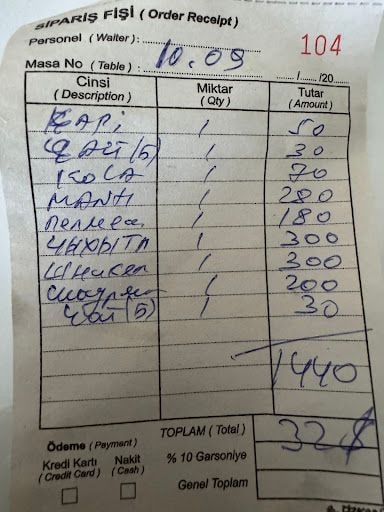 SİPARİŞ FİŞİ ( Order Receipt )
Personel ( Waiter ) :
104
Masa No ( Table ) : 10.09 ....../....../20....
Cinsi ( Description ) Miktar ( Qty ) Tutar ( Amount )
1 50
ЧАЙ (5) 1 30
КОЛА 1 70
МАНТЫ 1 280
пельмен 1 180
ЧЫХЫРТМ 1 300
Шницел 1 300
1 200
Чай (5) 1 30
1440
TOPLAM ( Total ) 32 $
Ödeme ( Payment )
Kredi Kartı ( Credit Card ) Nakit ( Cash )
% 10 Garsoniye
Genel Toplam